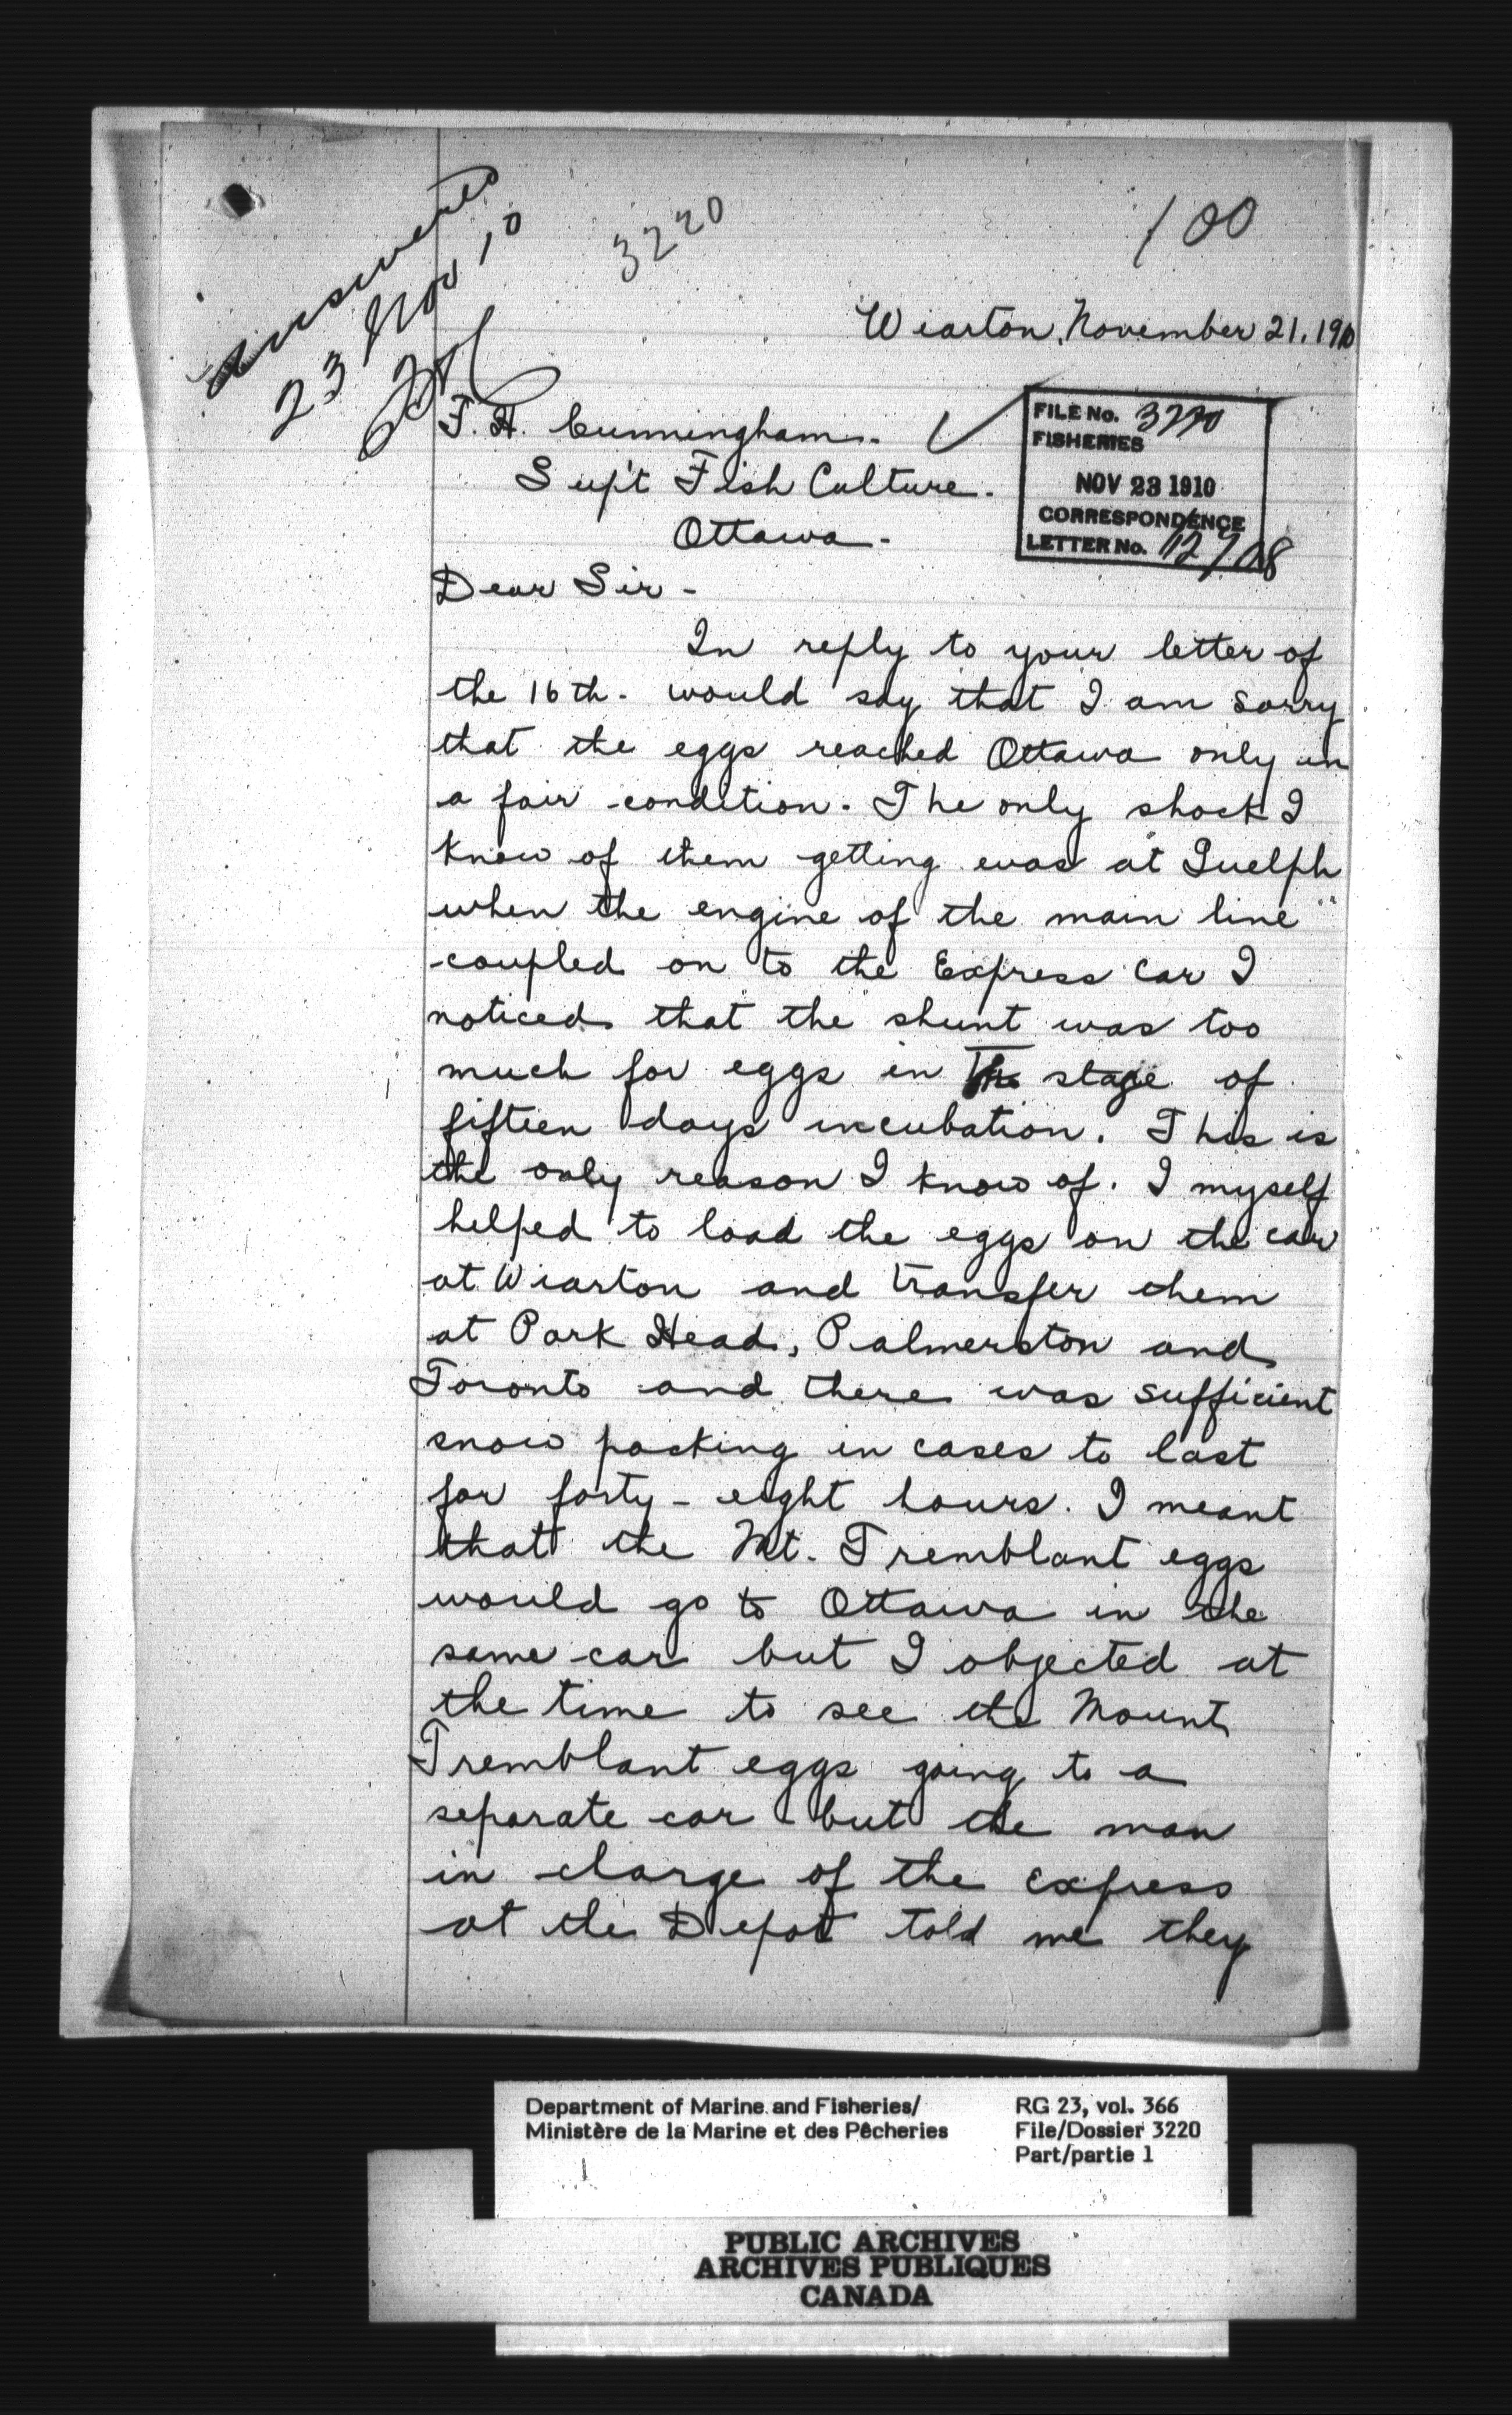 answered
23 Nov 10
3220
100
Wiarton, November 21. 1910
F. H. Cunningham.
Sup't Fish Culture.
Ottawa.
FILE No. 3220
FISHERIES
NOV 23 1910
CORRESPONDENCE
LETTER No.
Dear Sir -
In reply to your letter of
the 16th. would say that I am sorry
that the eggs reached Ottawa only in
a fair condition. The only shock I
know of them getting was at Guelph
when the engine of the main line
coupled on to the Express Car I
noticed that the shunt was too
much for eggs in the stage of
fifteen days incubation. This is
the only reason I know of. I myself
helped to load the eggs on the car
at Wiarton and transfer them
at Park Head, Palmerston and
Toronto and there was sufficient
snow packing in cases to last
for forty-eight hours. I meant
that the Mt. Tremblant eggs
would go to Ottawa in the
same car but I objected at
the time to see the Mount
Tremblant eggs going to a
separate car but the man
in charge of the Express
at the Depot told me they
Department of Marine and Fisheries/
Ministère de la Marine et des Pêcheries
RG 23, vol. 366
File/Dossier 3220
Part/partie 1
PUBLIC ARCHIVES
ARCHIVES PUBLIQUES
CANADA